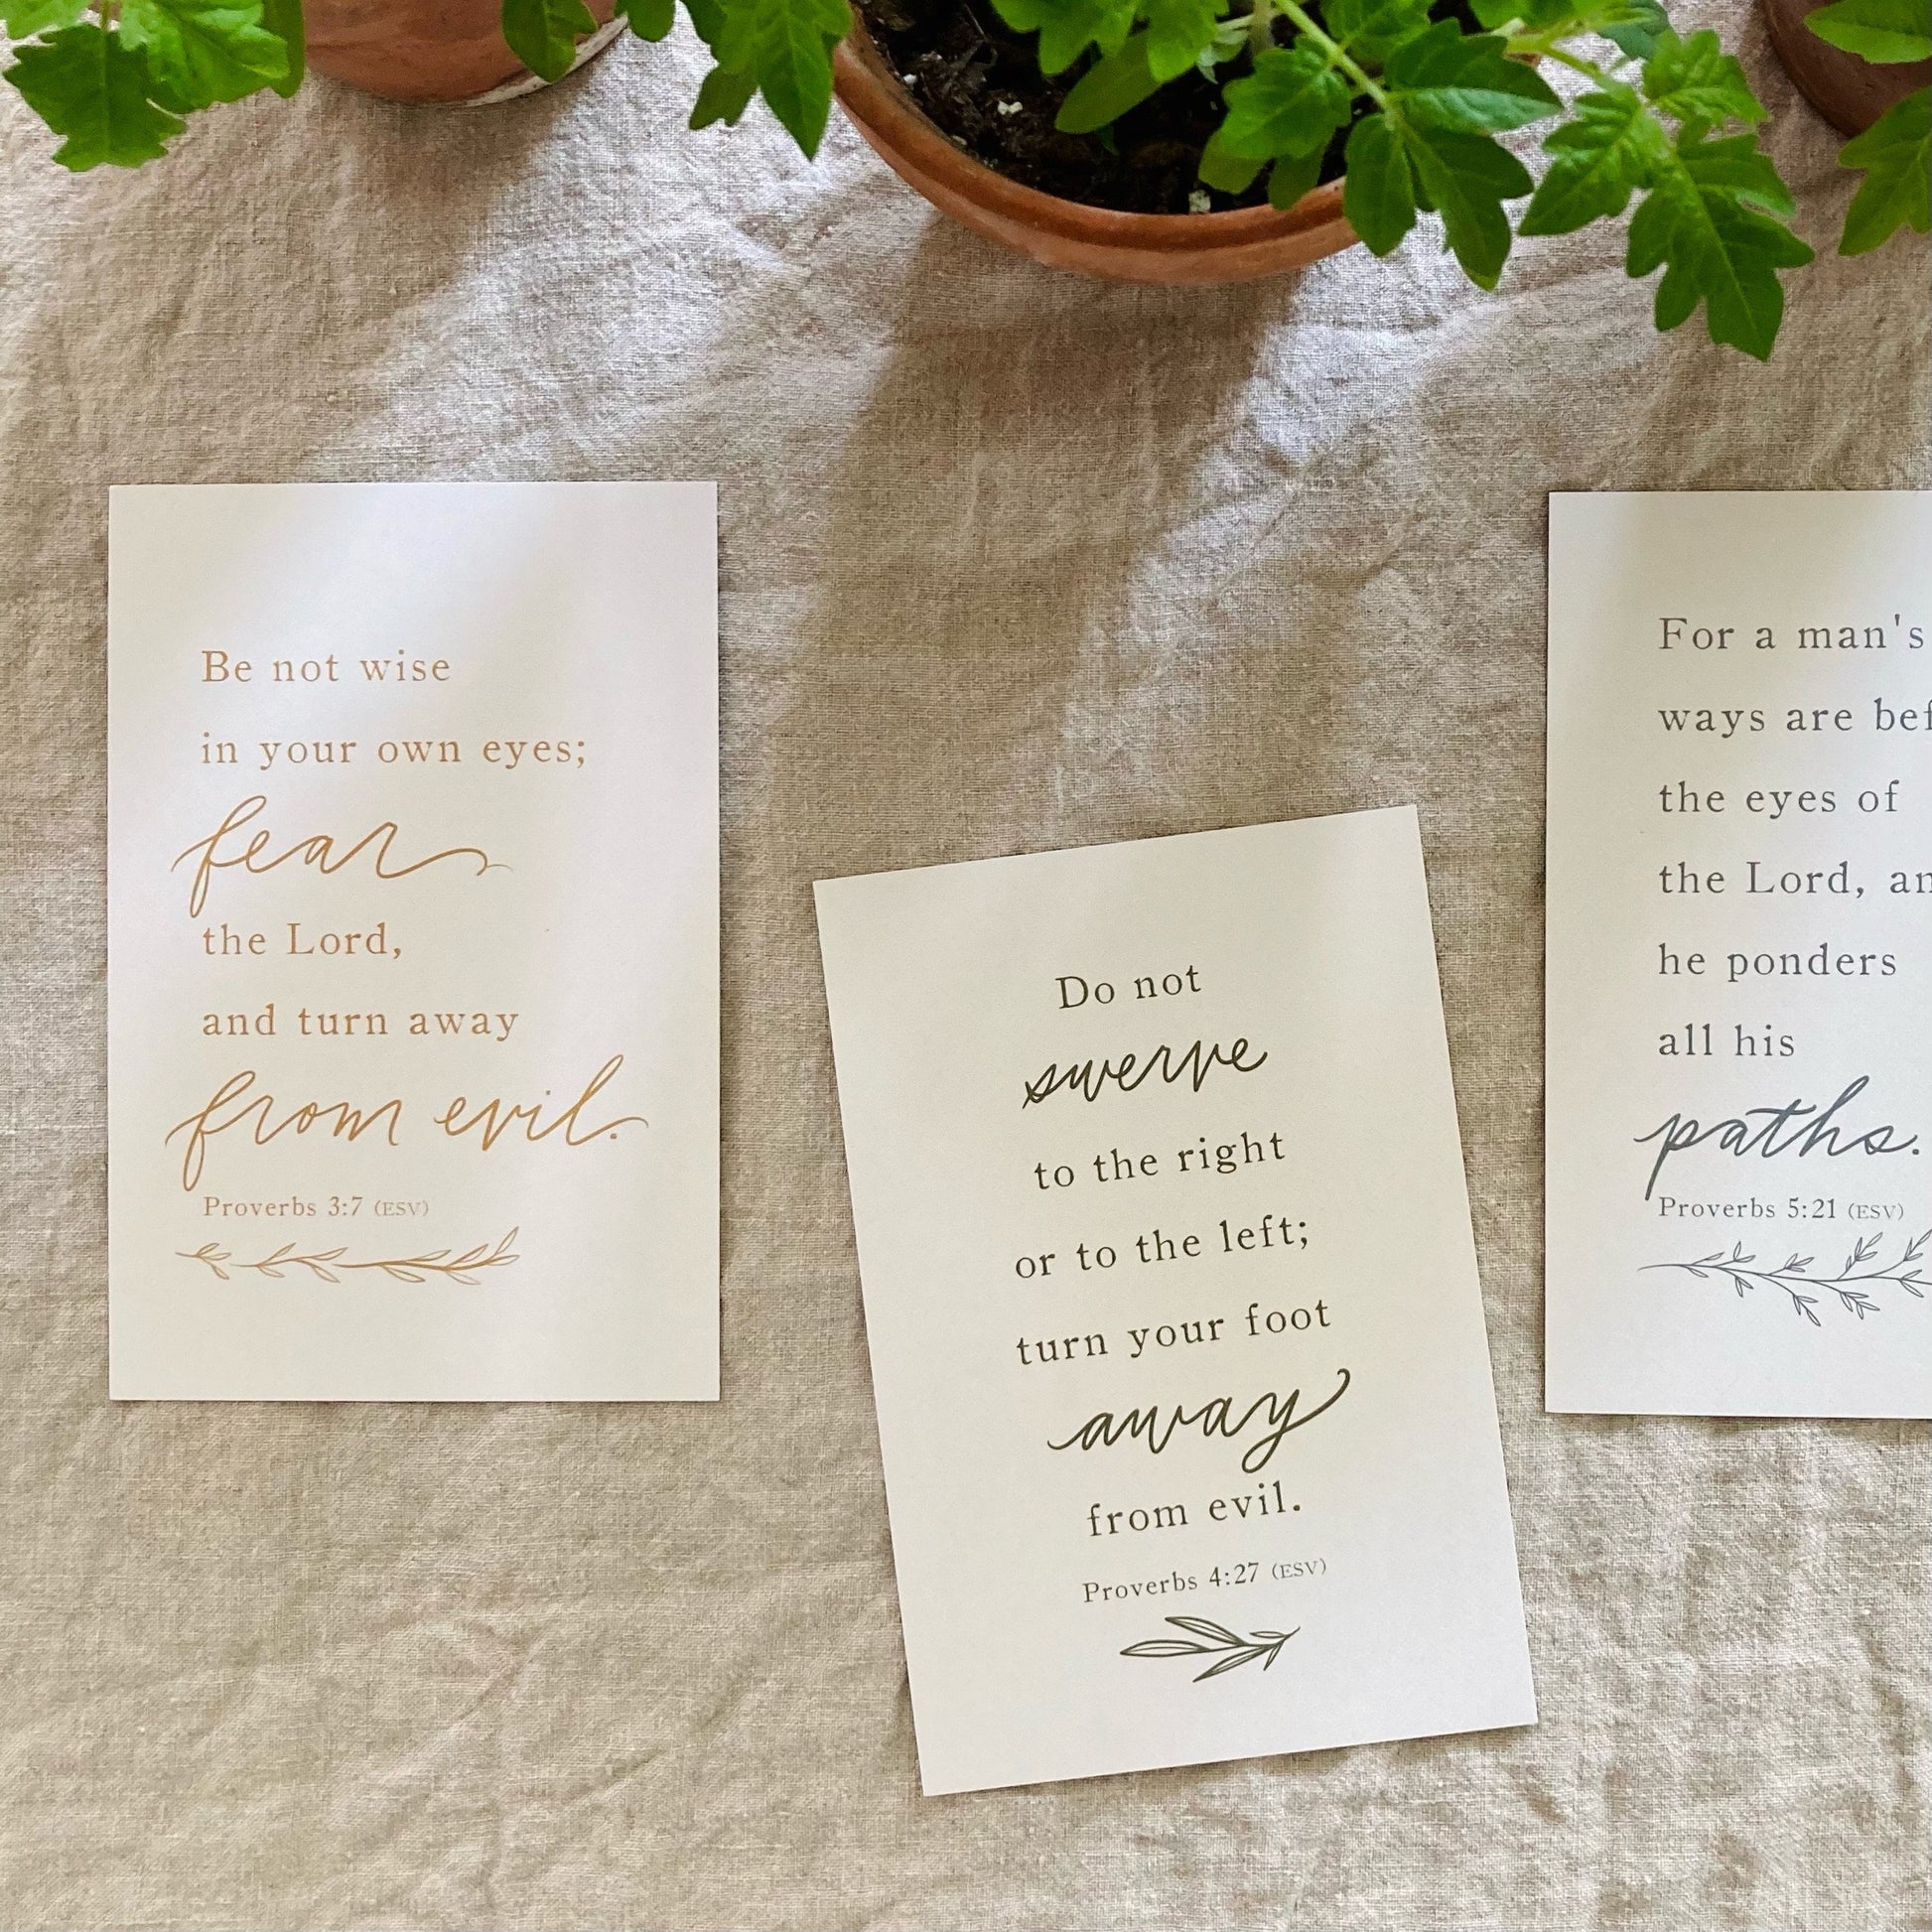 Be not wise
in your own eyes;
fear
the Lord,
and turn away
from evil.
Proverbs 3:7 (ESV)
Do not
swerve
to the right
or to the left;
turn your foot
away
from evil.
Proverbs 4:27 (ESV)
For a man's
ways are
the eyes of
the Lord,
he ponders
all his
paths.
Proverbs 5:21 (ESV)